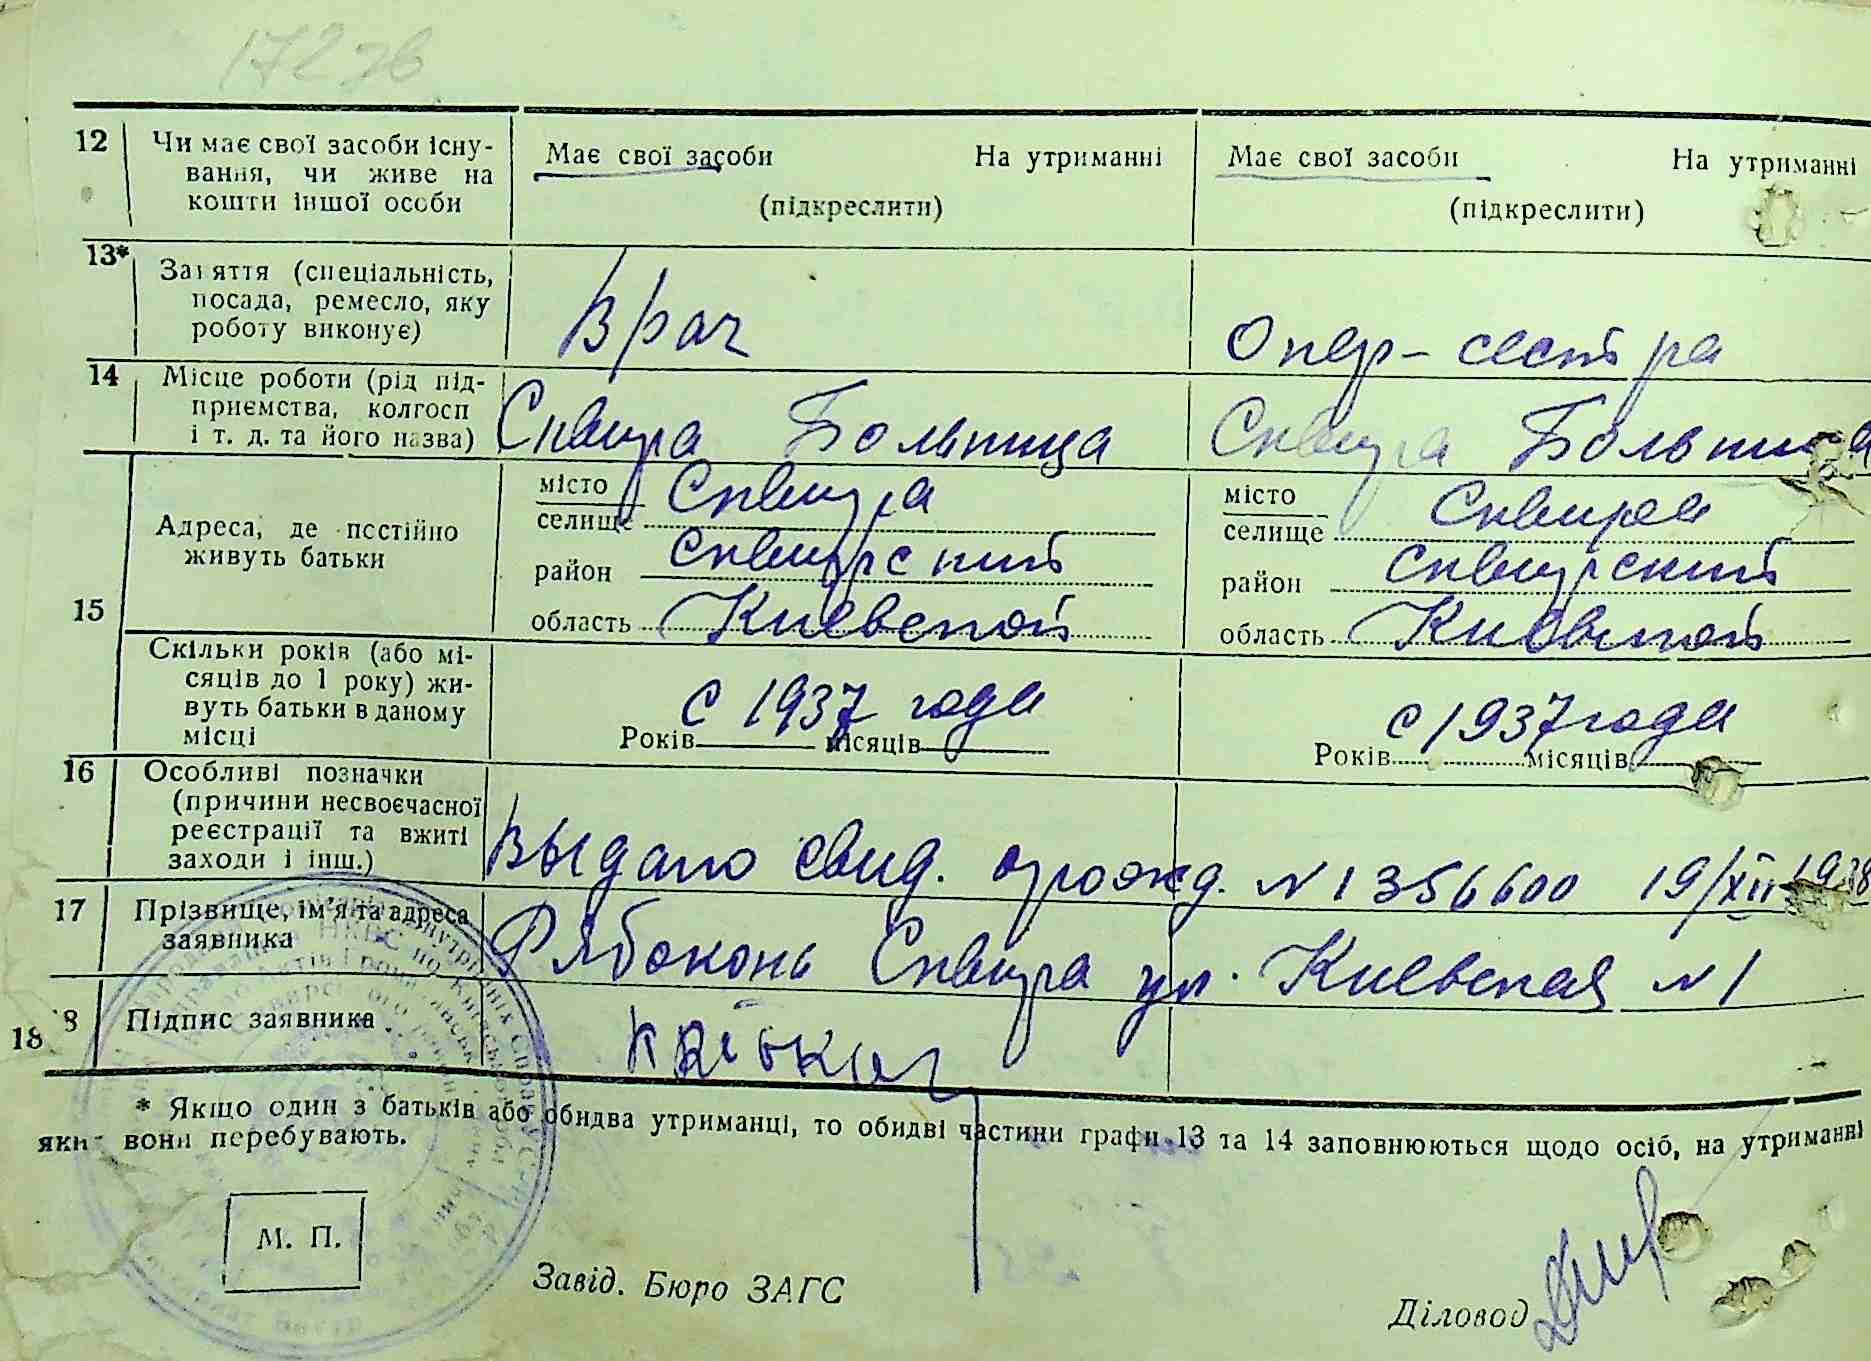 12 Чи має свої засоби існу-
вання, чи живе на
кошти іншої особи
Має свої засоби На утриманні
(підкреслити)
Має свої засоби На утриманні
(підкреслити)
13* Заняття (спеціальність,
посада, ремесло, яку
роботу виконує)
Врач
Опер-сестра
14 Місце роботи (рід під-
приємства, колгосп
і т. д. та його назва)
Сквира Больница
Сквира Больница
15
Адреса, де постійно
живуть батьки
місто Сквира
селище
район Сквирский
область Киевской
місто Сквира
селище
район Сквирский
область Киевской
Скільки років (або мі-
сяців до 1 року) жи-
вуть батьки в даному
місці
с 1937 года
Років місяців
с 1937 года
Років місяців
16 Особливі позначки
(причини несвоєчасної
реєстрації та вжиті
заходи і інш.)
Выдано свид. о рожд. № 1356600 19/XII 1938
17 Прізвище, ім'я та адреса
заявника
Рябоконь Сквира ул. Киевская №1
18 Підпис заявника
* Якщо один з батьків або обидва утриманці, то обидві частини графи 13 та 14 заповнюються щодо осіб, на утриманні
яких вони перебувають.
М. П.
Завід. Бюро ЗАГС
Діловод